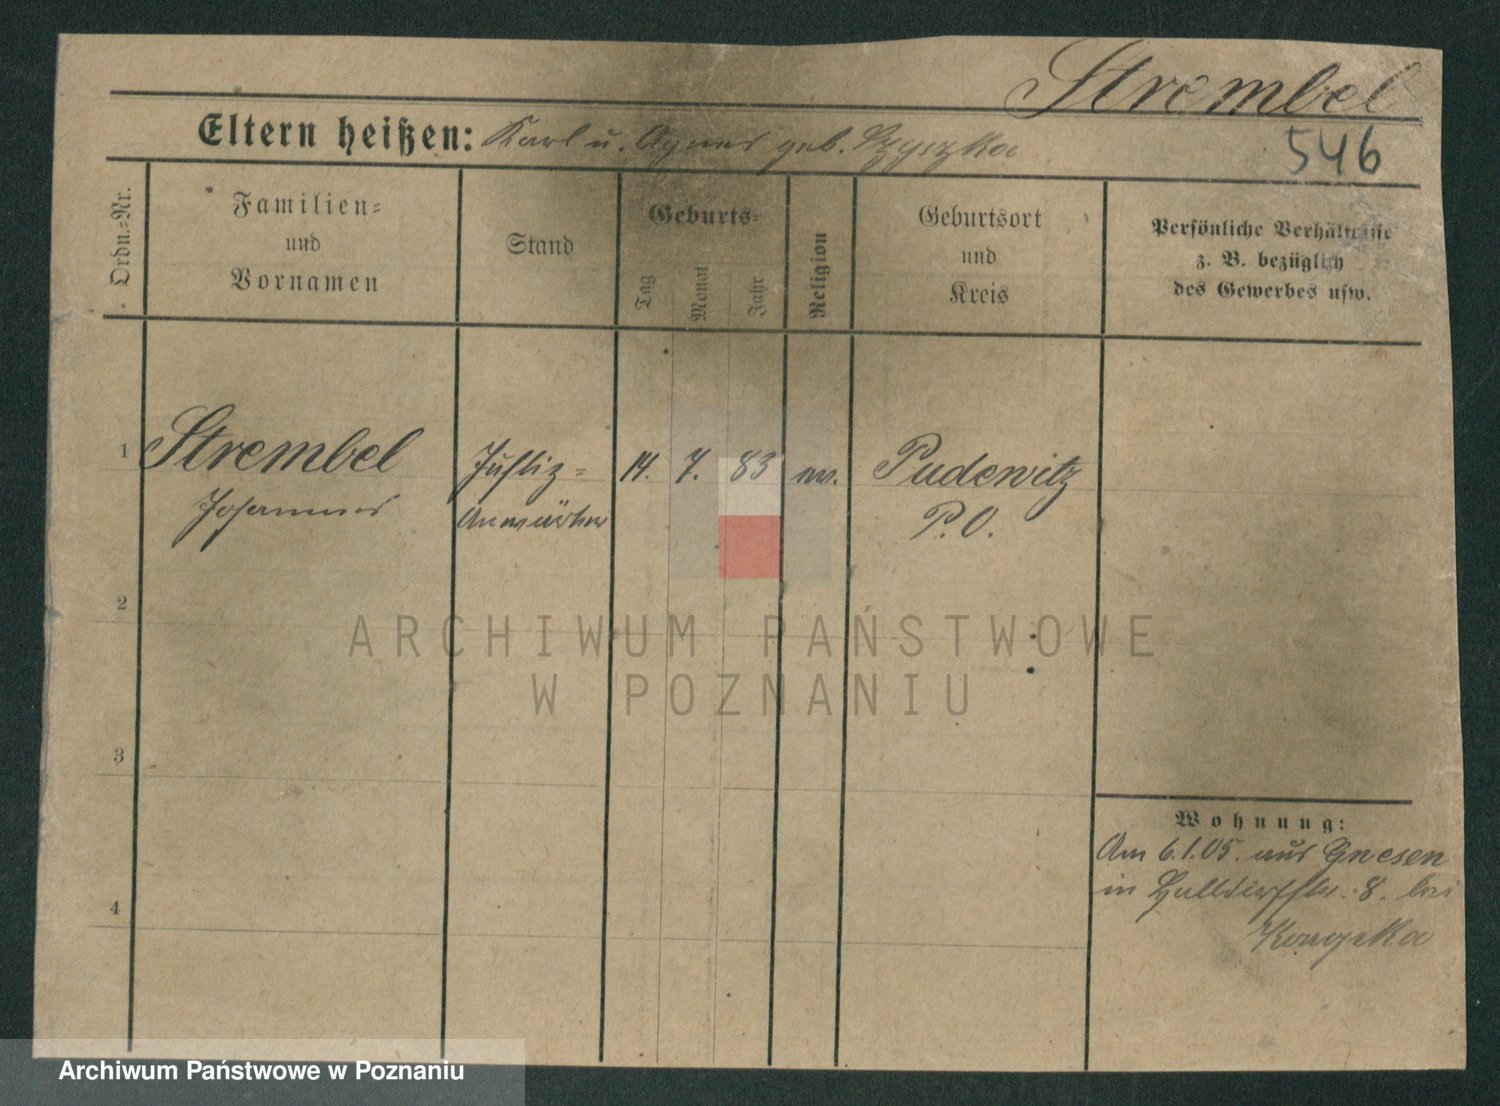 Strembel
546
Eltern heißen: Karl u. Agnes geb. Kryszka
Ordn.=Nr.
Familien=
und
Vornamen
Stand
Geburts=
Tag
Monat
Jahr
Religion
Geburtsort
und
Kreis
Persönliche Verhältnisse
z. B. bezüglich
des Gewerbes usw.
1 Strembel Justiz= 14. 7. 83 ev. Pudewitz
Johannes Anwärter P. O.
2
3
4
Wohnung:
Am 6.1.05. aus Gnesen
in 8. bei
ARCHIWUM PAŃSTWOWE
W POZNANIU
Archiwum Państwowe w Poznaniu